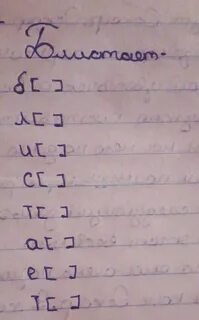 Блистает-
б[ ]
л[ ]
и[ ]
с[ ]
т[ ]
а[ ]
е[ ]
т[ ]